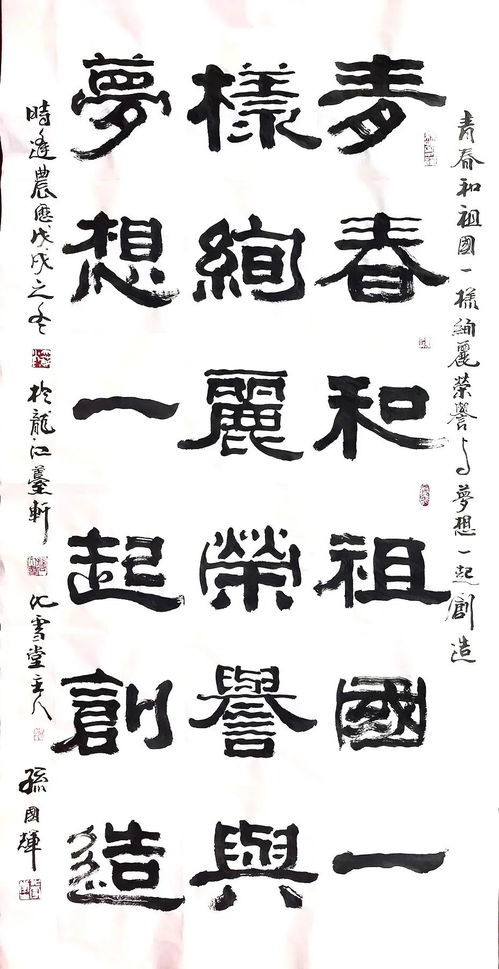 青春和祖國一樣絢麗榮譽与夢想一起創造
青春和祖國一
樣絢麗榮譽與
夢想一起創造
時逢農歷戊戌之冬 於龍江軒 化雪堂主人 孫國輝